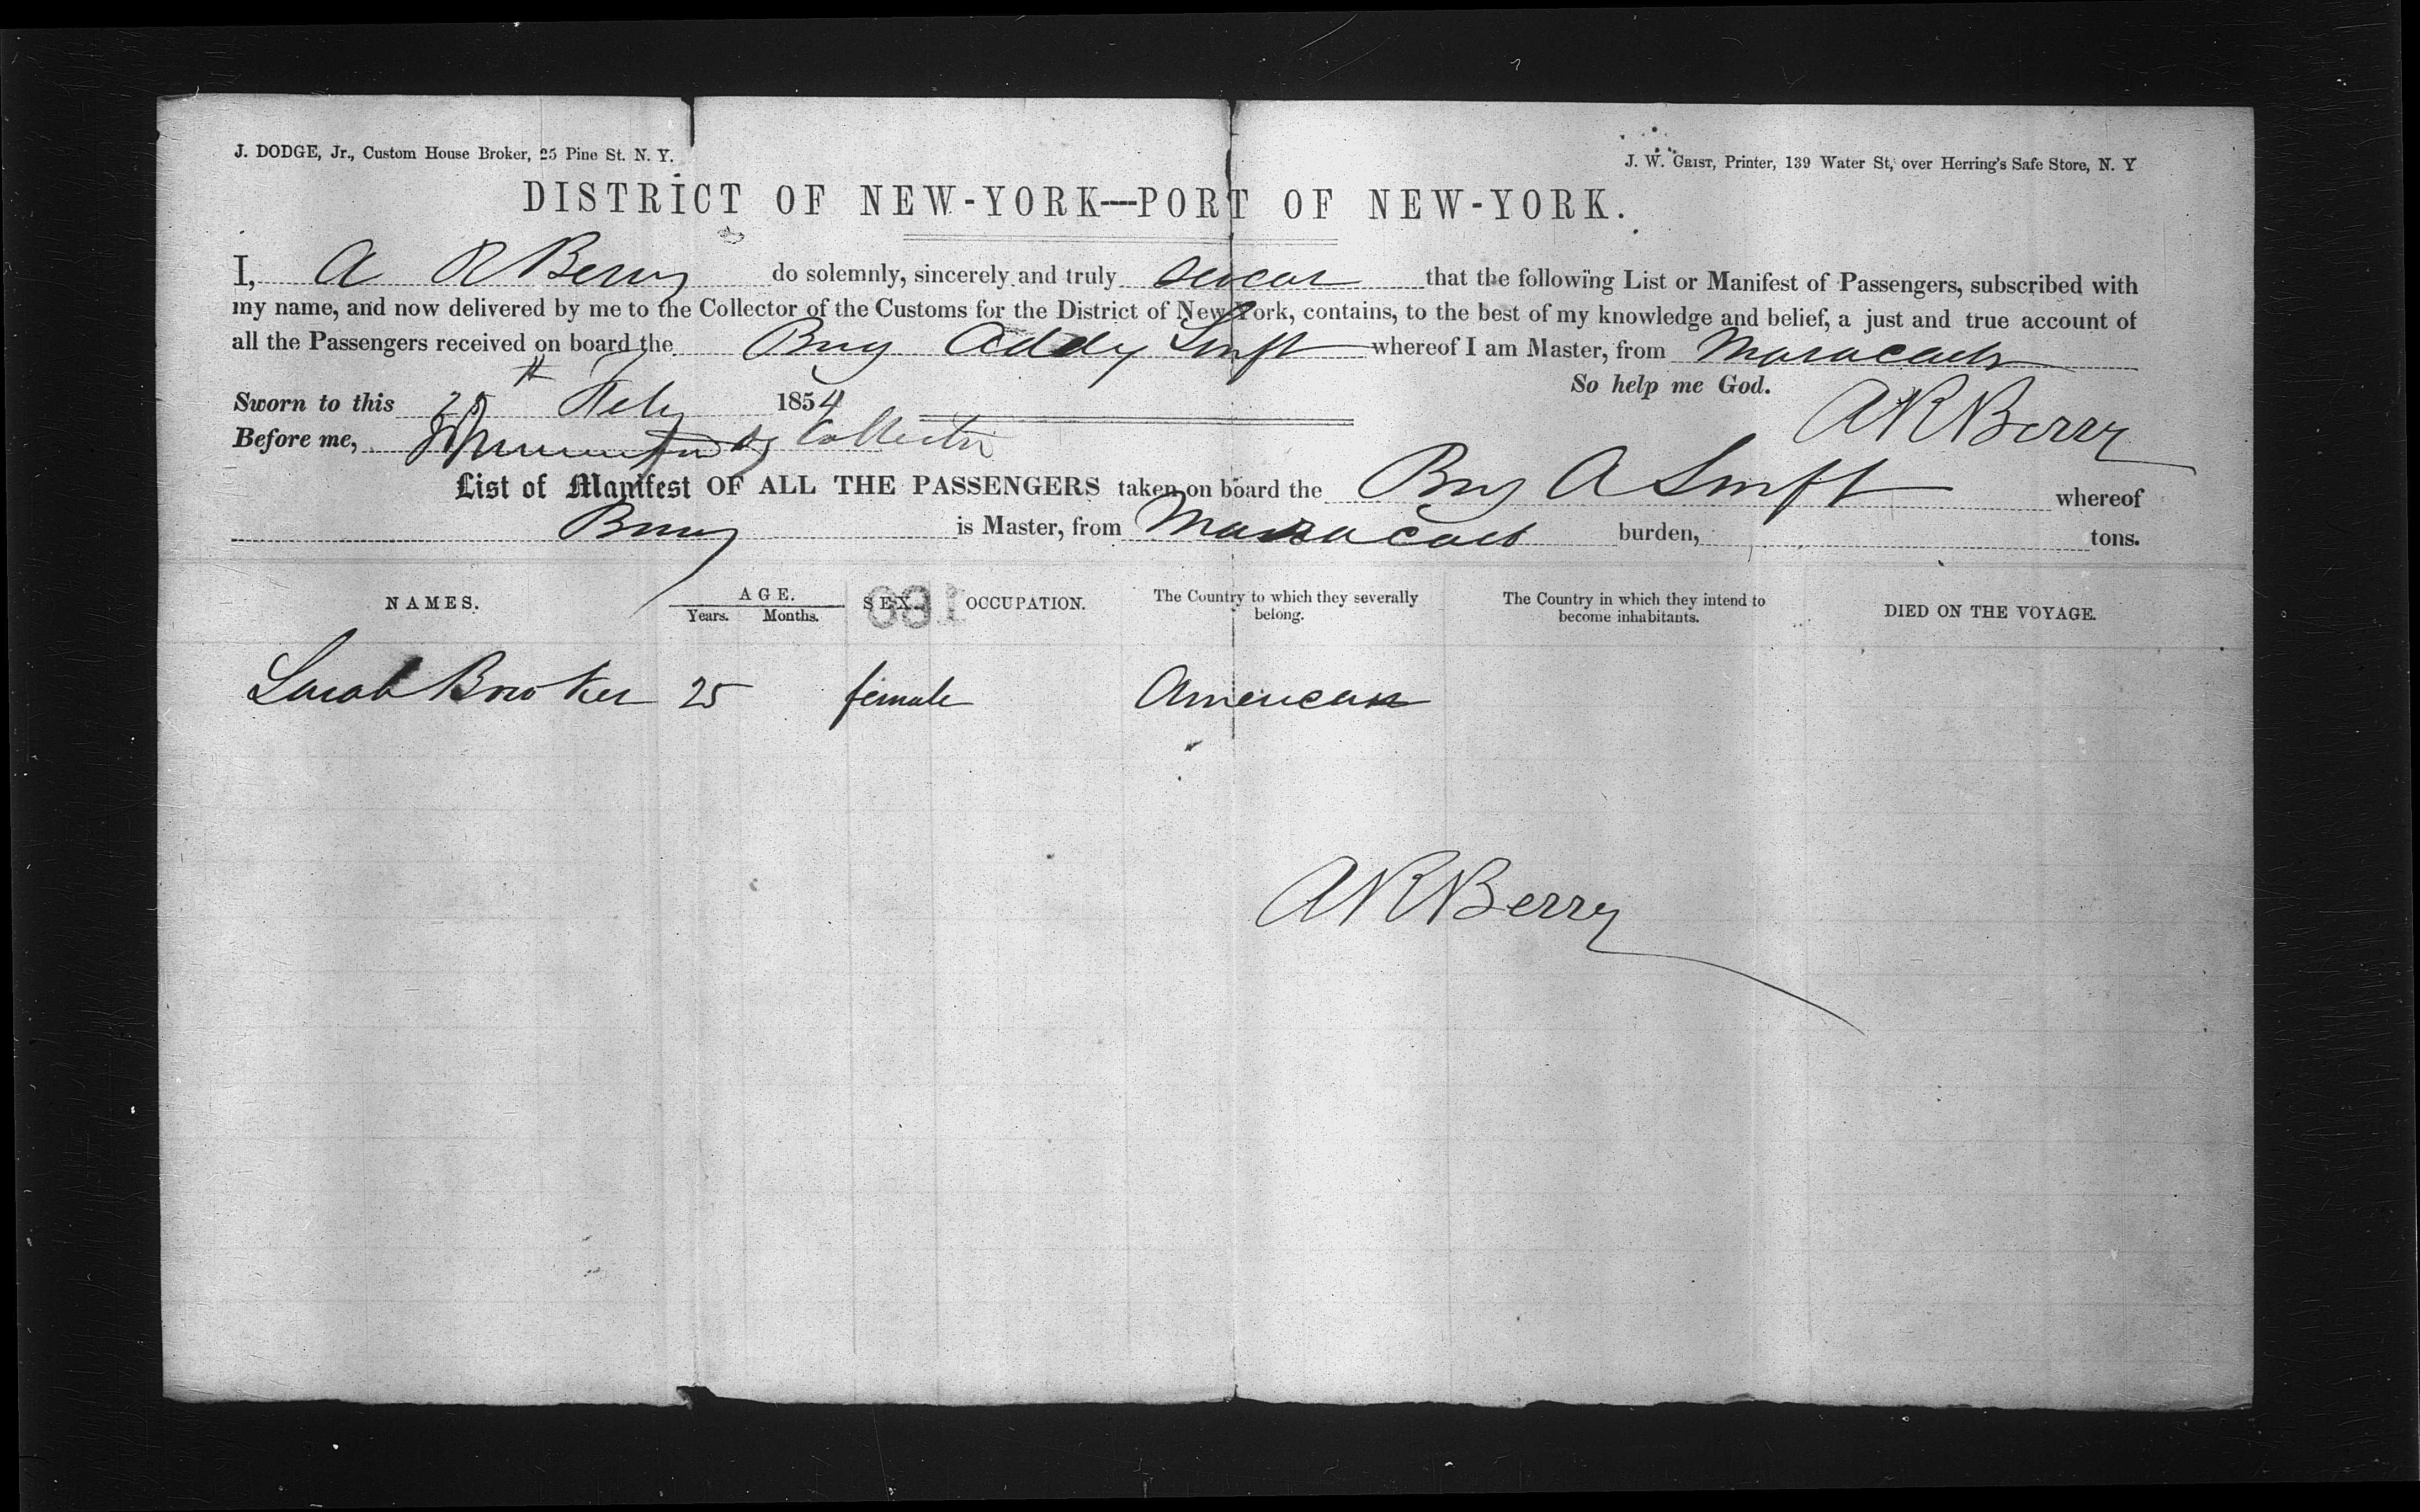 J. DODGE, Jr., Custom House Broker, 25 Pine St. N. Y.
J. W. GRIST, Printer, 139 Water St, over Herring's Safe Store, N. Y
DISTRICT OF NEW-YORK—PORT OF NEW-YORK.
I, A R Berry do solemnly, sincerely and truly swear that the following List or Manifest of Passengers, subscribed with
my name, and now delivered by me to the Collector of the Customs for the District of New-York, contains, to the best of my knowledge and belief, a just and true account of
all the Passengers received on board the Brig Addy Swift whereof I am Master, from Maracaibo
So help me God.
Sworn to this 25th Feby 1854
A R Berry
Before me, Dy Collector
List of Manifest OF ALL THE PASSENGERS taken on board the Brig A Swift whereof
Berry is Master, from Maracaibo burden, tons.
NAMES. AGE. Years. Months. SEX. OCCUPATION. The Country to which they severally belong. The Country in which they intend to become inhabitants. DIED ON THE VOYAGE.
Sarah 25 female American
A R Berry